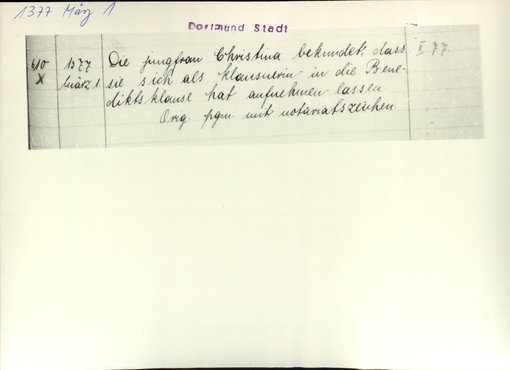 1377 März 1
Dortmund Stadt
610 1377 Die jungfrau Christina bekundet, dass II 77.
X März 1. sie sich als klausnerin in die Bene-
diktsklause hat aufnehmen lassen
Orig. pgm. mit notariatszeichen